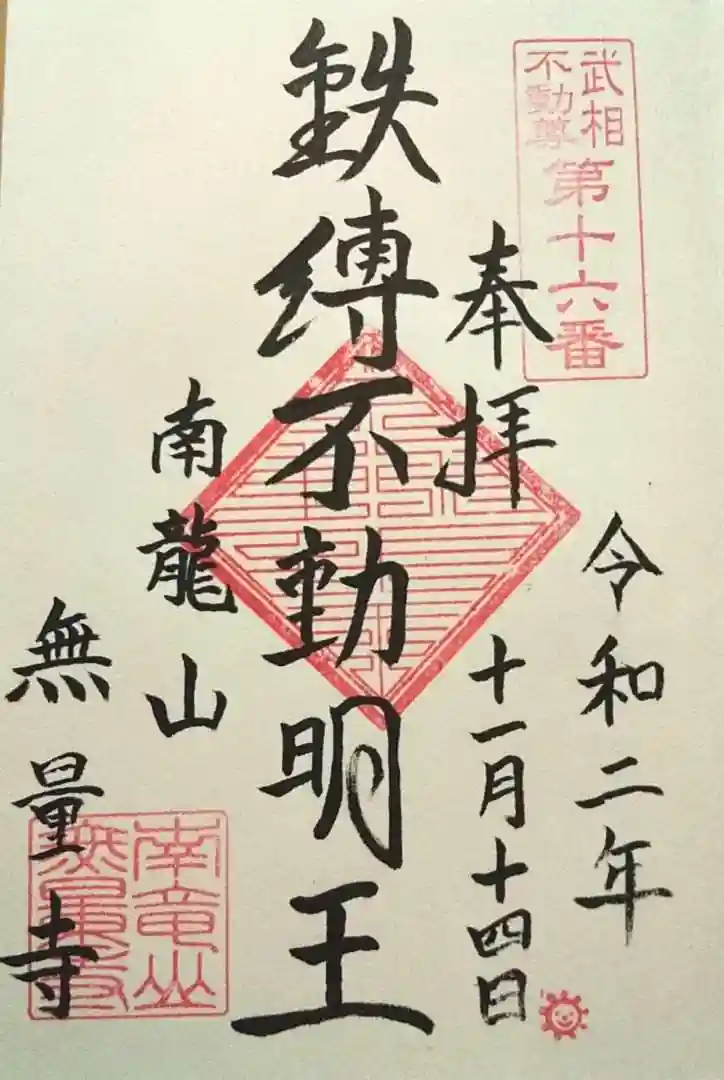 武相
不動尊
第十六番
令和二年
奉拝
十一月十四日
鉄縛不動明王
南龍山
無量寺
南竜山